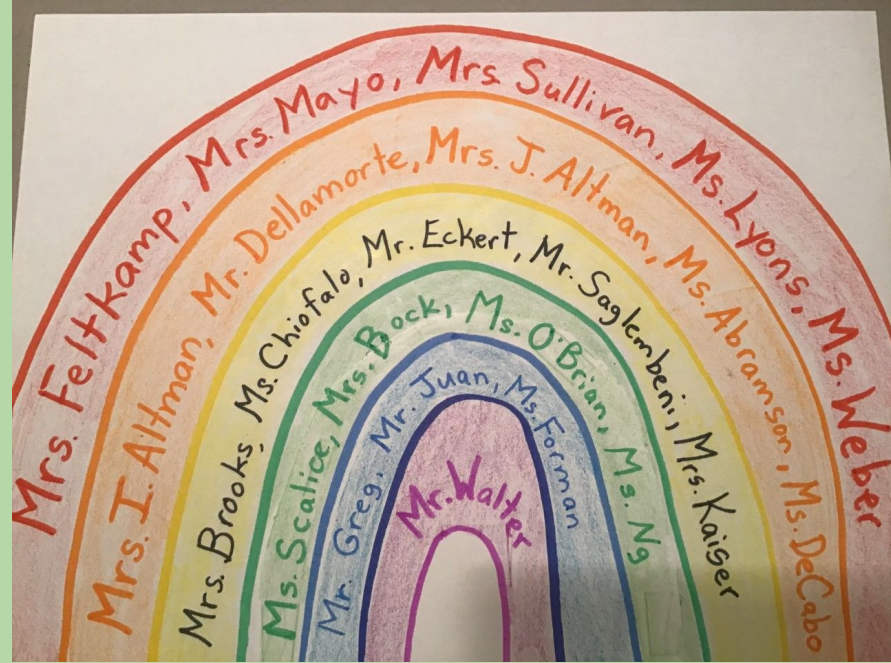 Mrs. Feltkamp, Mrs. Mayo, Mrs. Sullivan, Ms. Lyons, Ms. Weber
Mrs. I. Altman, Mr. Dellamorte, Mrs. J. Altman, Ms. Abramson, Ms. DeCabo
Mrs. Brooks, Ms. Chiofalo, Mr. Eckert, Mr. Saglembeni, Mrs. Kaiser
Ms. Scalice, Mrs. Bock, Ms. O'Brian, Ms. Ng
Mr. Greg, Mr. Juan, Ms. Forman
Mr. Walter